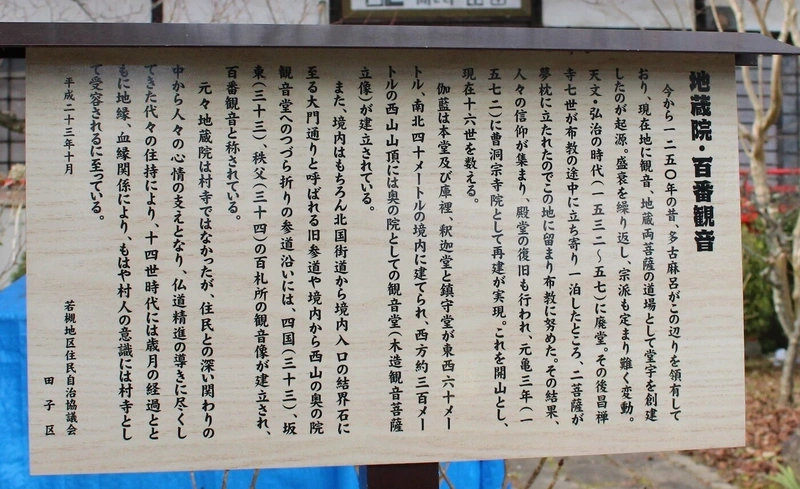 地蔵院・百番観音
今から一二五〇年の昔、多古麻呂がこの辺りを領有して
おり、現在地に観音、地蔵両菩薩の道場として堂宇を創建
したのが起源。盛衰を繰り返し、宗派も定まり難く変動。
天文・弘治の時代(一五三二～五七)に廃堂。その後昌禅
寺七世が布教の途中に立ち寄り一泊したところ、二菩薩が
夢枕に立たれたのでこの地に留まり布教に努めた。その結果、
人々の信仰が集まり、殿堂の復旧も行われ、元亀三年(一
五七二)に曹洞宗寺院として再建が実現。これを開山とし、
現在十六世を数える。
伽藍は本堂及び庫裡、釈迦堂と鎮守堂が東西六十メー
トル、南北四十メートルの境内に建てられ、西方約三百メー
トルの西山山頂には奥の院としての観音堂(木造観音菩薩
立像)が建立されている。
また、境内はもちろん北国街道から境内入口の結界石に
至る大門通りと呼ばれる旧参道や境内から西山の奥の院
観音堂へのつづら折りの参道沿いには、四国(三十三)、坂
東(三十三)、秩父(三十四)の百札所の観音像が建立され、
百番観音と称されている。
元々地蔵院は村寺ではなかったが、住民との深い関わりの
中から人々の心情の支えとなり、仏道精進の導きに尽くし
てきた代々の住持により、十四世時代には歳月の経過とと
もに地縁、血縁関係により、もはや村人の意識には村寺とし
て受容されるに至っている。
平成二十三年十月
若槻地区住民自治協議会
田子区